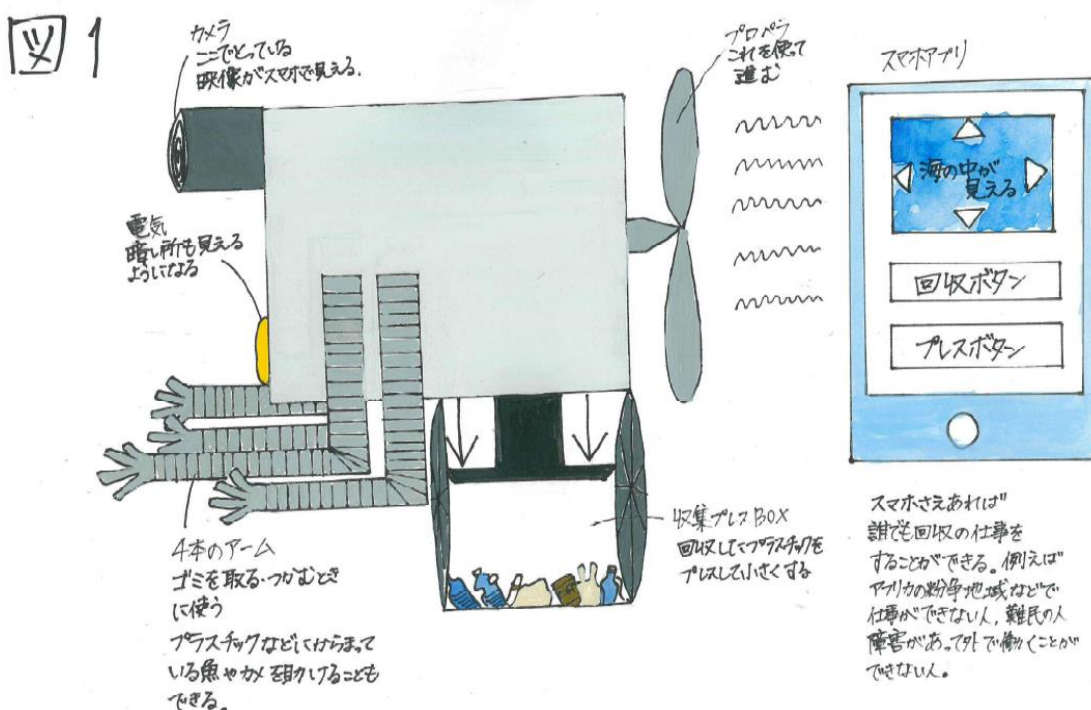 図1
カメラ
ここでとっている
映像がスマホで見える.
プロペラ
これを使って
進む
スマホアプリ
海の中が
見える
回収ボタン
プレスボタン
電気
暗い所も見える
ようになる
4本のアーム
ゴミを取る・つかむとき
に使う
プラスチックなどにからまって
いる魚やカメを助けることも
できる。
収集プレスBOX
回収したプラスチックを
プレスして小さくする
スマホさえあれば
誰でも回収の仕事を
することができる。例えば
アフリカの紛争地域などで
仕事ができない人,難民の人
障害があって外で働くことが
できない人。